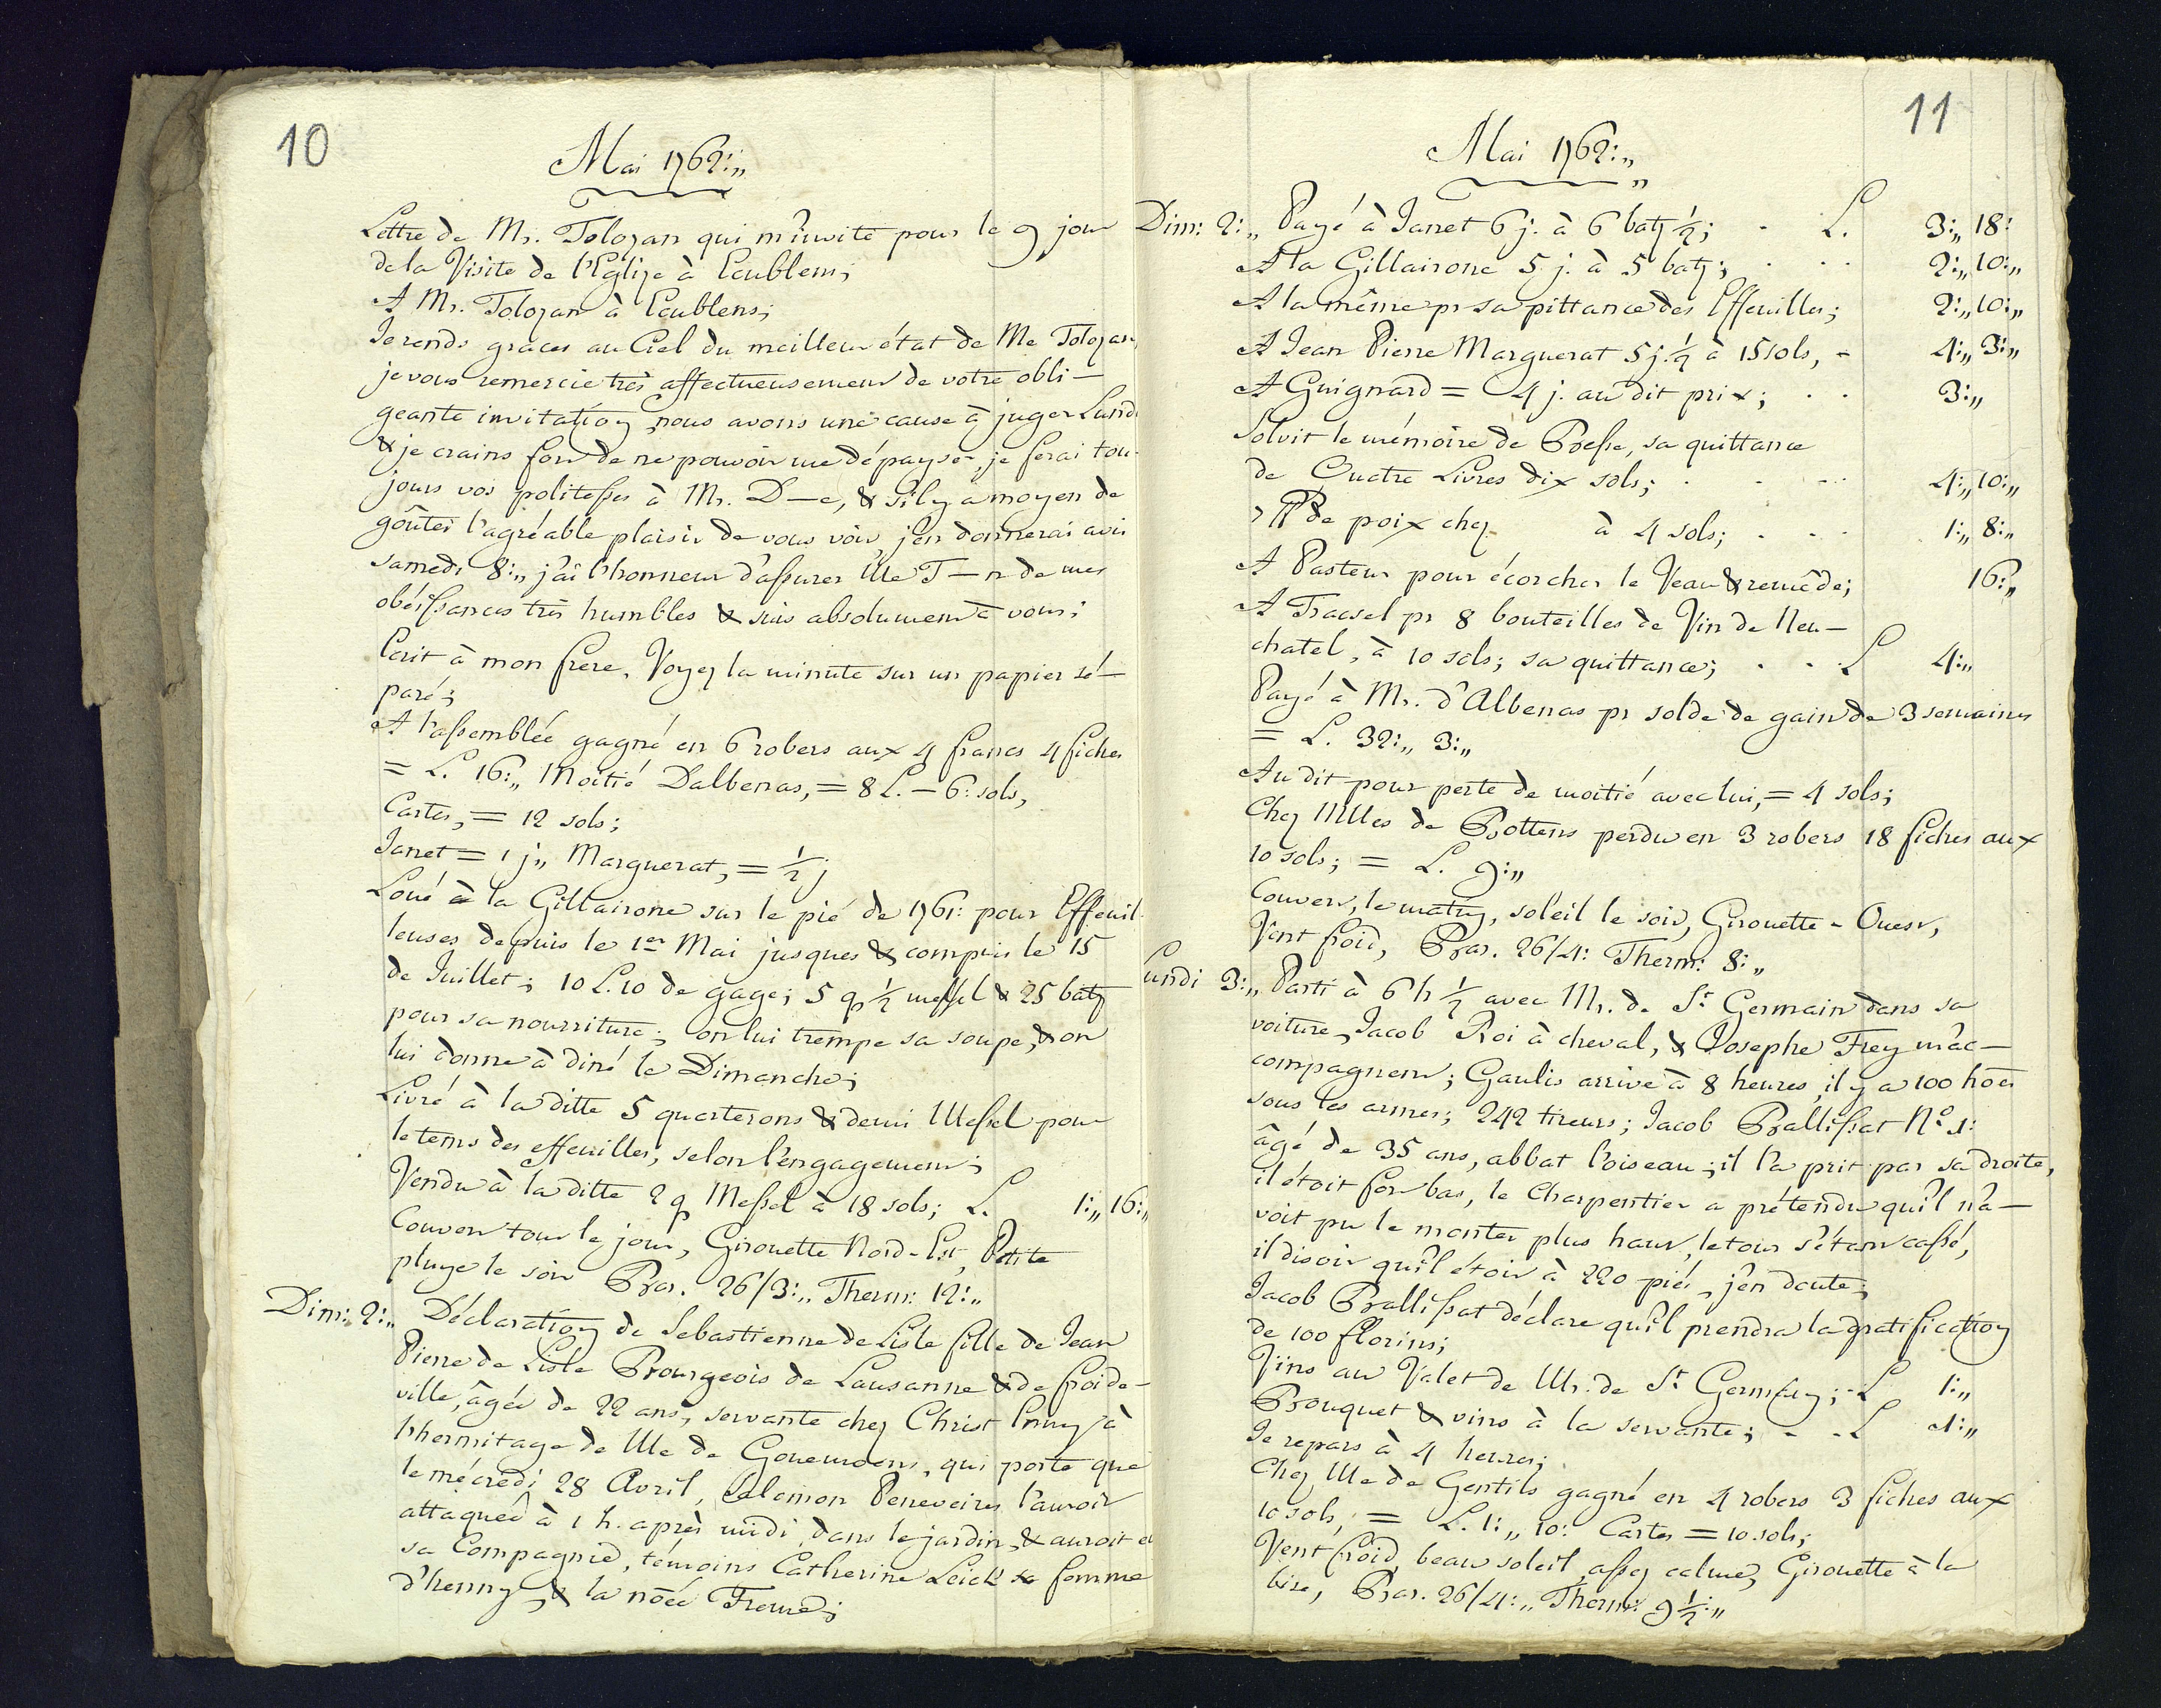 10
Mai 1762:„
Lettre de Mr. Tolozan qui m'invite pour le 9 jour
de la Visite de l'Eglize à Ecublens;
A Mr. Tolozan à Ecublens;
Je rends graces au Ciel du meilleur état de Me Tolozan,
je vous remercie très affectueusement de votre obli-
geante invitation, nous avons une cause à juger Lundi
& je crains fort de ne pouvoir me dépayser, je ferai tou-
jours vos politesses à Mr. D—e, & s'il y a moyen de
goûter l'agréable plaisir de vous voir, j'en donnerai avis
samedi 8:„ j'ai l'honneur d'assurer Me T—n de mes
obéissances très humbles & suis absolument à vous;
Ecrit à mon frere, Voyez la minute sur un papier sé-
paré;
A l'assemblée gagné en 6 robers aux 4 francs 4 fiches
= L. 16:„ Moitié Dalbenas, = 8 L. – 6: sols,
Cartes, = 12 sols;
Janet = 1 j„ Marguerat, = ½ j
Loué à la Gillairone sur le pié de 1761: pour Effeuil-
leuses depuis le 1er Mai jusques & compris le 15
de Juillet; 10 L. 10 de gage; 5 q ½ messel & 25 batz
pour sa nourriture; on lui trempe sa soupe, & on
lui donne à diné le Dimanche;
Livré à la ditte 5 quarterons & demi Messel pour
le tems des effeuilles, selon l'engagement;
Vendu à la ditte 2 q Messel à 18 sols; L. 1:„ 16:„
Couvert tout le jour, Girouette Nord-Est, Petite
pluye le soir Bar. 26/3:„ Therm: 12:„
Dim: 2:„ Déclaration de Sebastienne de Lisle fille de Jean
Pierre de Lisle Bourgeois de Lausanne & de froide-
ville, âgée de 22 ans, servante chez Christ à
l'hermitage de Me de Goumoens, qui porte que
le mécredi 28 Avril, Salomon Peneveires l'auroit
attaquée à 1 h. après midi dans le jardin, & auroit eu
sa Compagnie, témoins Catherine Leick sa femme
d'henny, & la nõée Freme;
11
Mai 1762:„
Dim: 2:„ Payé à Janet 6 j. à 6 batz ½; L. 3:„ 18:
A la Gillairone 5 j. à 5 batz; 2:„ 10:„
A la même pr sa pittance des Effeuilles; 2:„ 10:„
A Jean Pierre Marguerat 5 j. ½ à 15 sols, 4:„ 3:„
A Guignard = 4 j. au dit prix; 3:„
Solvit le mémoire de Besse, sa quittance
de Quatre Livres dix sols; 4:„ 10:„
7 ℔ de poix chez à 4 sols; 1:„ 8:„
A Pasteur pour écorcher le Veau & remède; 16:„
A Tracsel pr 8 bouteilles de Vin de Neu-
chatel, à 10 sols; sa quittance; L 4:„
Payé à Mr. d'Albenas pr solde de gain de 3 semaines
= L. 32:„ 3:„
Au dit pour perte de moitié avec lui, = 4 sols;
Chez Mlles de Bottens perdu en 3 robers 18 fiches aux
10 sols; = L. 9:„
Couvert, le matin, soleil le soir, Girouette - Ouest,
Vent froid, Bar. 26/4: Therm: 8:„
Lundi 3:„ Parti à 6 h ½ avec Mr. de St Germain dans sa
voiture, Jacob Roi à cheval, & Josephe Frey m'ac-
compagnent; Gaulis arrive à 8 heures, il y a 100 hões
sous les armes; 242 tireurs; Jacob Ballissat No 1:
âgé de 35 ans, abbat l'oiseau; il l'a prit par sa droite,
il étoit fort bas, le Charpentier a prétendu qu'il n'a-
voit pu le monter plus haut, le tour s'étant cassé,
il disoit qu'il étoit à 220 piés, j'en doute;
Jacob Ballissat déclare qu'il prendra la gratification
de 100 florins;
Vins au Valet de Mr. de St Germain; L 1:„
Bouquet & vins à la servante; L 4:„
Je repars à 4 heures;
Chez Me de Gentils gagné en 4 robers 3 fiches aux
10 sols, = L. 1:„ 10: Cartes = 10 sols;
Vent froid, beau soleil, assez calme, Girouette à la
bize, Bar. 26/4:„ Therm: 9 ½:„